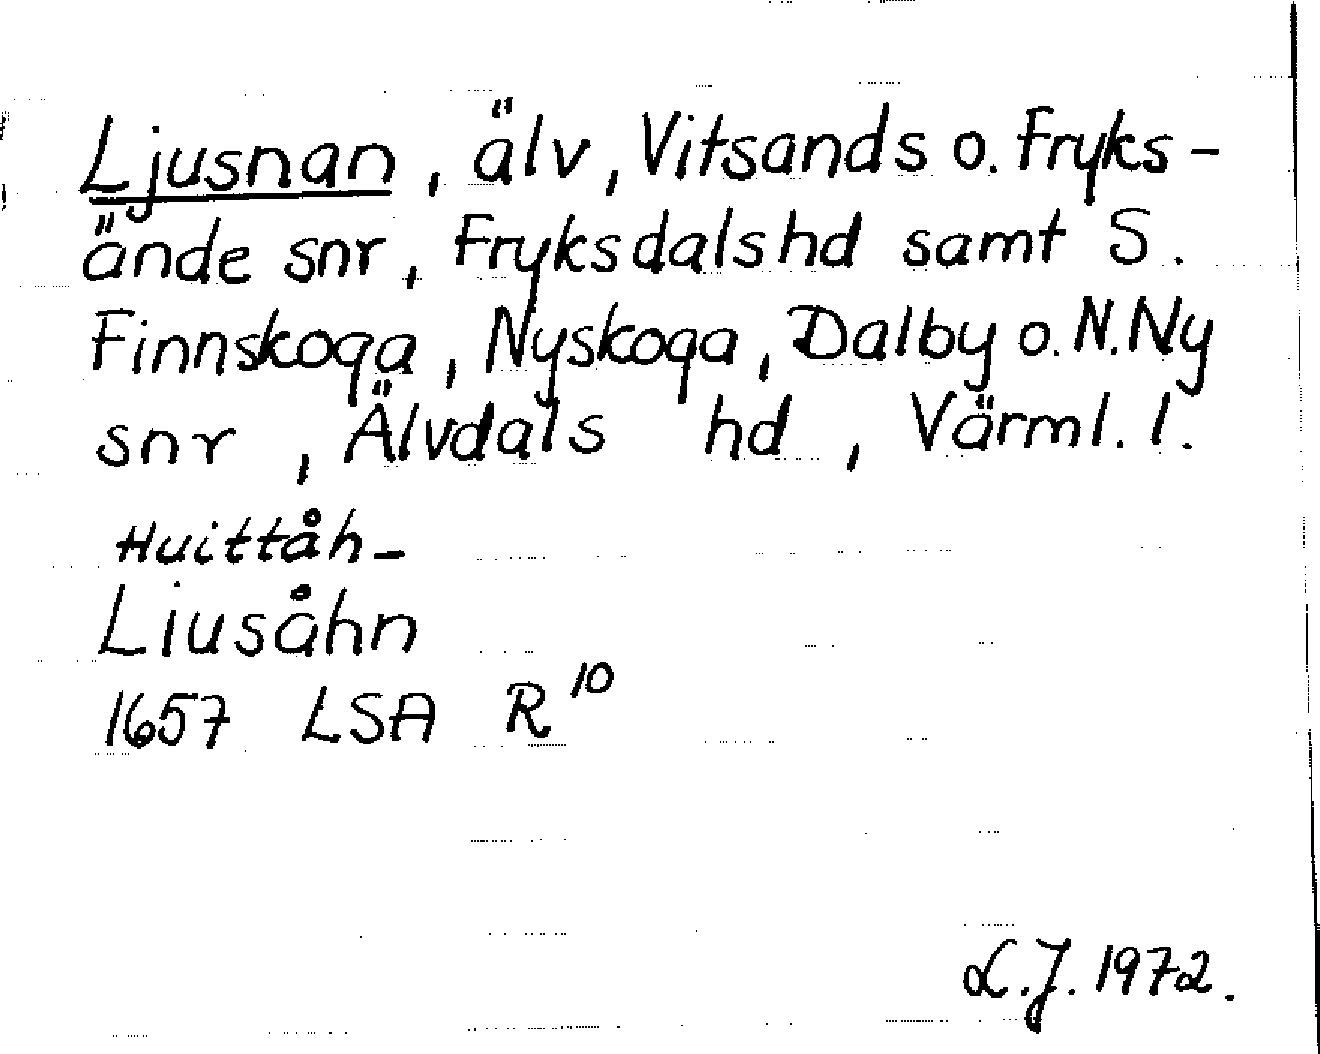 Ljusnan, älv, Vitsands o. Fryks-
ände snr, Fryksdals hd samt S.
Finnskoga, Nyskoga, Dalby o. N. Ny
snr, Älvdals hd, Värml. l.
Huittåh-
Liusåhn
1657 LSA R 10
L.J. 1972.